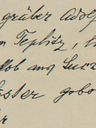 gräber Adolf
m Teplitz, 
Mob aus
ester gebo
r